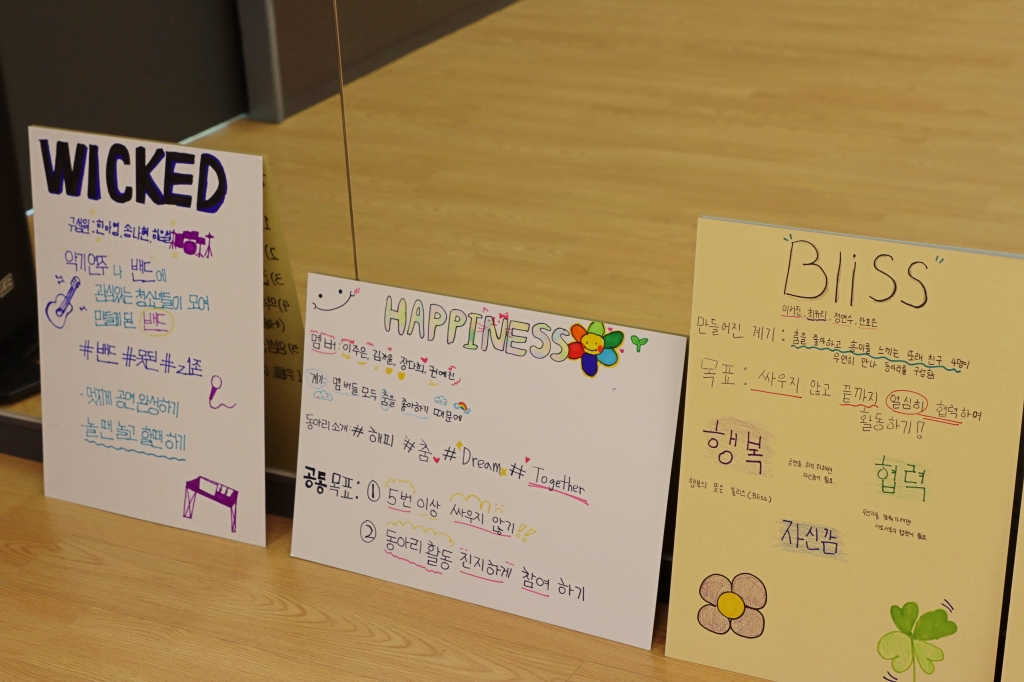 WICKED
구성원 : 한아영, 송나현, 하윤설
악기연주 나 밴드에
관심있는 청소년들이 모여
만들게된 밴드
#밴드 #못된 # z1존
- 멋지게 공연 완성하기
- 놀 땐 놀고 할땐 하기
HAPPINESS
멤버 : 이주은, 김겨울, 장다희, 권예진
계기: 멤버들 모두 춤을 좋아하기 때문에
동아리 소개 : # 해피 # 춤 # Dream # Together
공동 목표 : ① 5번 이상 싸우지 않기!!
② 동아리 활동 진지하게 참여 하기
"Bliss"
이서진, 최유리, 정연수, 안효든
만들어진 계기 : 춤을 좋아하고 흥미를 느끼는 또래 친구 4명이
우연히 만나 동아리를 구성함
목표 : 싸우지 않고 끝까지 열심히 협력하며
활동하기!!
행복
행복의 뜻은 블리스(Bliss)
협력
자신감